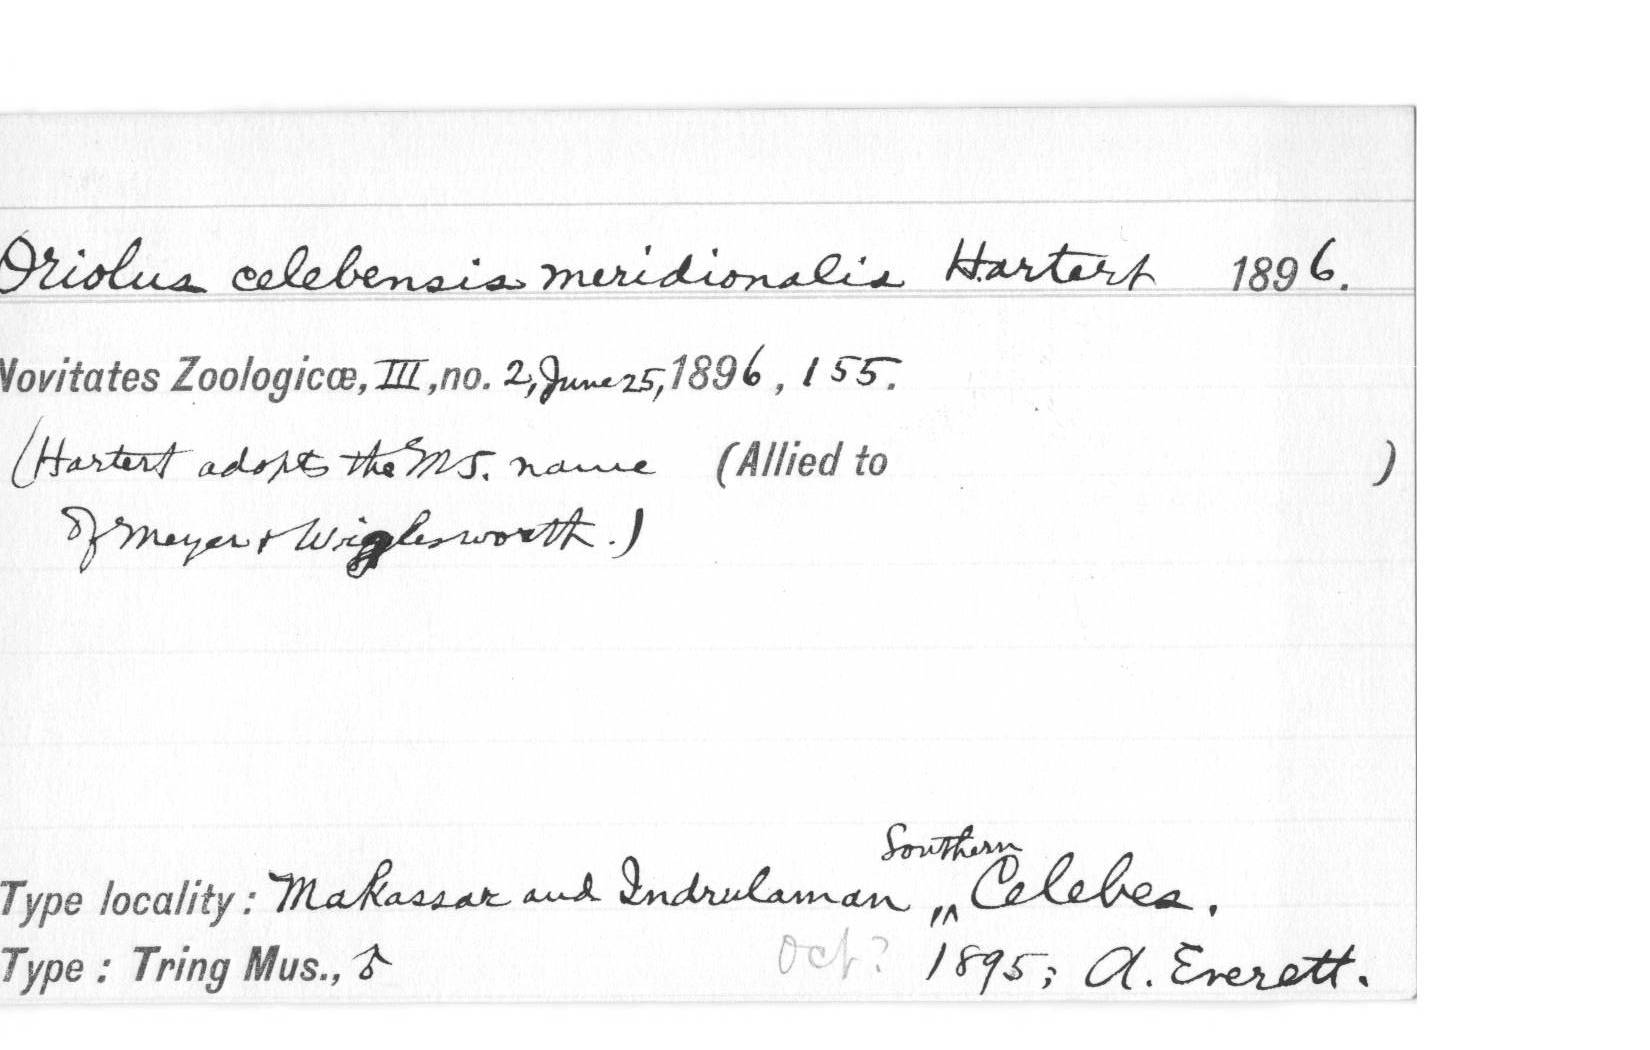 Oriolus celebensis meridionalis Hartert 1896.
Novitates Zoologicæ, III, no. 2, June 25, 1896, 155.
(Hartert adopts the MS. name (Allied to )
of Meyer & Wiglesworth.)
Southern
Type locality: Makassar and Indrulaman, Celebes.
Type: Tring Mus., ♂ Oct? 1895; A. Everett.